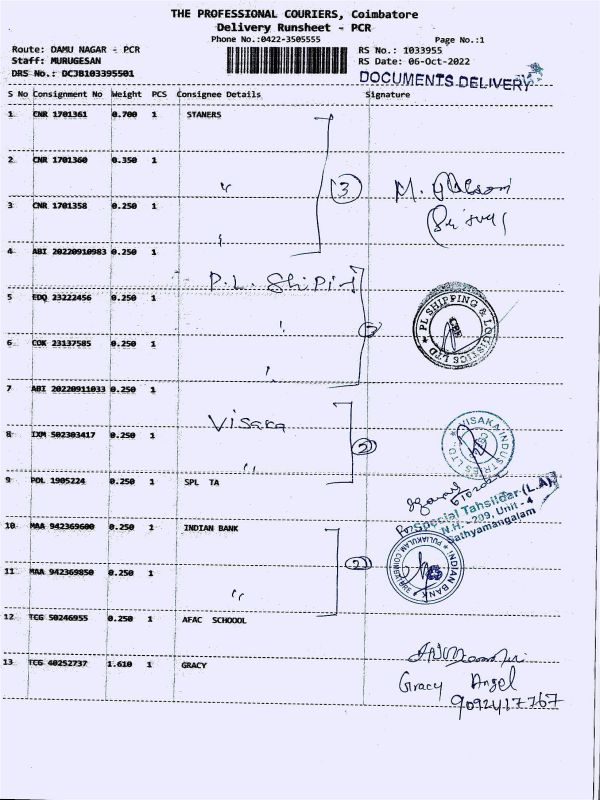 THE PROFESSIONAL COURIERS, Coimbatore
Delivery Runsheet - PCR
Phone No.:0422-3505555
Page No.:1
Route: DAMU NAGAR - PCR
RS No.: 1033955
Staff: MURUGESAN
RS Date: 06-Oct-2022
DRS No.: DCJB103395501
DOCUMENTS DELIVERY
S No Consignment No Weight PCS Consignee Details Signature
1 CNR 1701361 0.700 1 STANERS
2 CNR 1701360 0.350 1 "
3
M.
3 CNR 1701358 0.250 1 "
4 ABI 20220910983 0.250 1 P.L. Shiping
5 EDQ 23222456 0.250 1 "
PL SHIPPING & LOGISTICS LTD
CBE
6 COK 23137585 0.250 1 "
7 ABI 20220911033 0.250 1 Visaka
8 IXM 502303417 0.250 1 "
2
VISAKA INDUSTRIES LTD.
9 POL 1905224 0.250 1 SPL TA
Special Tahsildar (L.A)
N.H. - 209, Unit - 4
Sathyamangalam
10 MAA 942369600 0.250 1 INDIAN BANK
2
INDIAN BANK PULIAKULAM COIMBATORE
11 MAA 942369850 0.250 1 "
12 TCG 50246955 0.250 1 AFAC SCHOOOL
13 TCG 40252737 1.610 1 GRACY
Gracy Angel
9092417767